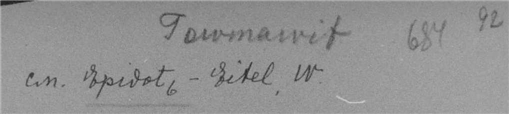 Tawmawit 684 92
см. Epidot₆ - Eitel, W.